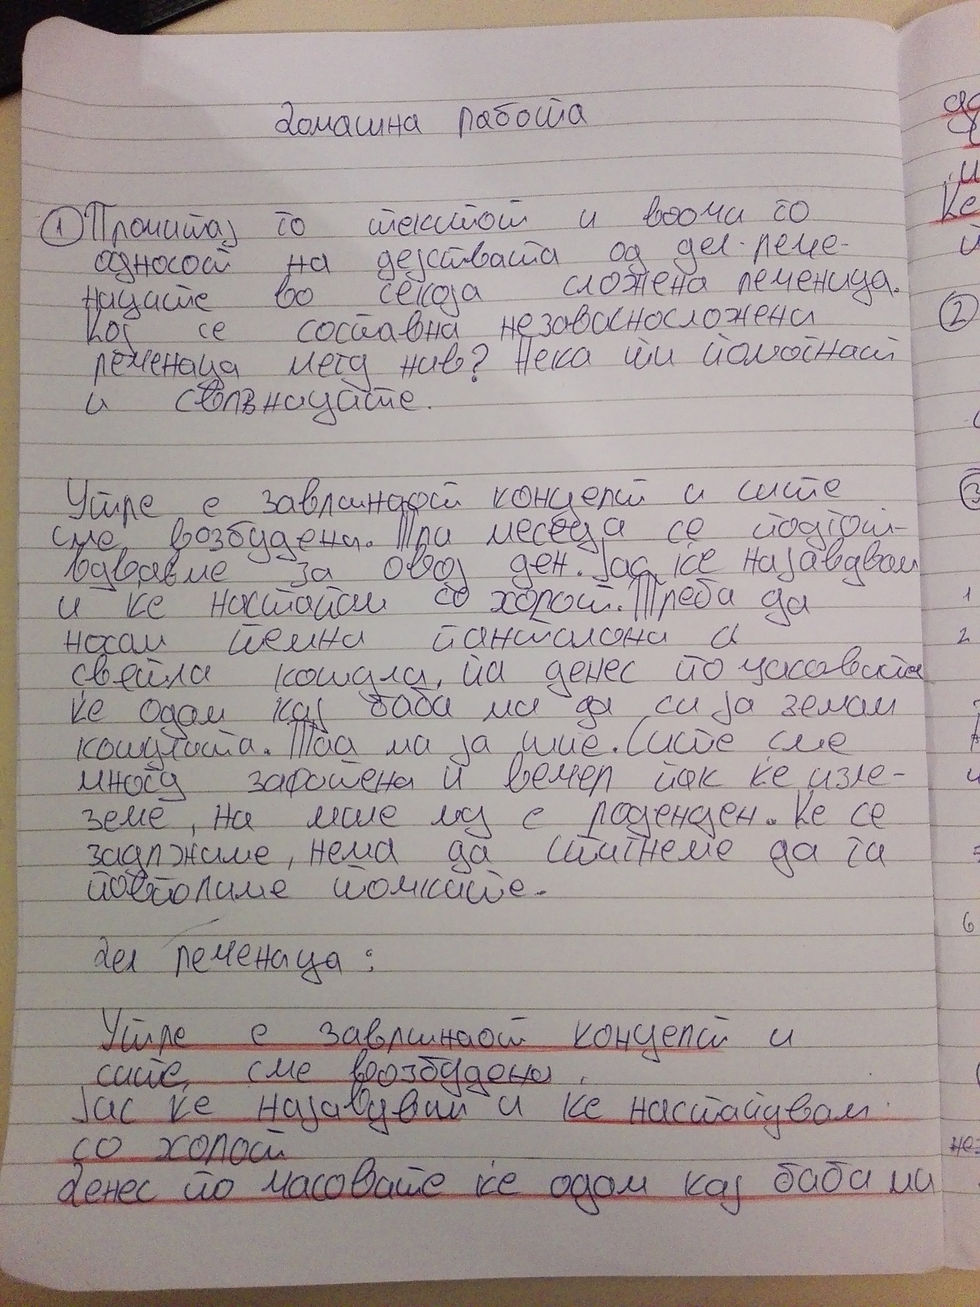 Домашна работа
① Прочитај го текстот и воочи го
односот на дејствата од дел-рече-
ниците во секоја сложена реченица.
Кој се составна независносложени
реченица меѓу нив? Нека ти помогнат
и сврзниците.
Утре е завршниот концерт и сите
сме возбудени. Три месеца се подгот-
вувавме за овој ден. Јас ќе најавувам
и ќе настапам со хорот. Треба да
носам темни панталони и
светла кошула, па денес по часовите
ќе одам кај баба ми да си ја земам
кошулата. Таа ми ја шие. Сите сме
многу
вечер пак ќе изле-
земе, на му е роденден. Ќе се
задржиме, нема да стигнеме да ги
повториме точките.
Дел реченица:
Утре е завршниот концерт и
сите, сме возбудени.
Јас ќе најавувам и ќе настапувам
со хорот
Денес по часовите ќе одам кај баба ми
②
1
2
6